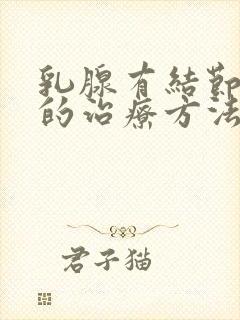 乳腺有結節
的治療方法
君子猫